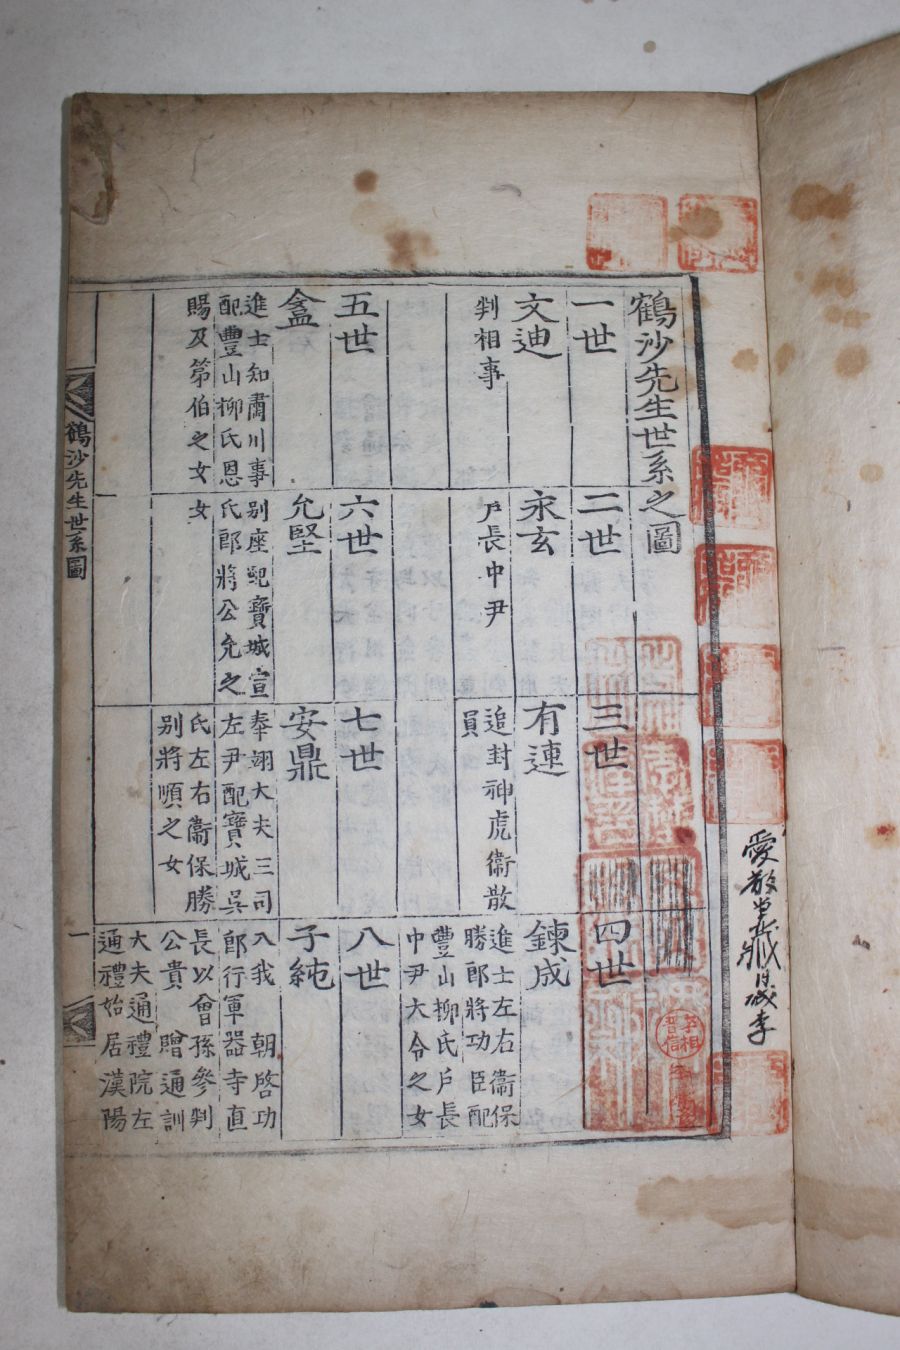 鶴沙先生世系之圖
一世
文迪
判相事
二世
永玄
戶長中尹
三世
有連
追封神虎衛散
員
四世
鍊成
進士左右衛保
勝郎將功臣配
豐山柳氏戶長
中尹大令之女
五世
盦
進士知肅川事
配豐山柳氏恩
賜及第伯之女
六世
允堅
別座配寶城宣
氏郎將公允之
女
七世
安鼎
奉翊大夫三司
左尹配寶城吳
氏左右衛保勝
別將順之女
八世
子純
入我 朝啓功
郎行軍器寺直
長以曾孫參判
公貴 贈通訓
大夫通禮院左
通禮始居漢陽
鶴沙先生世系圖
一